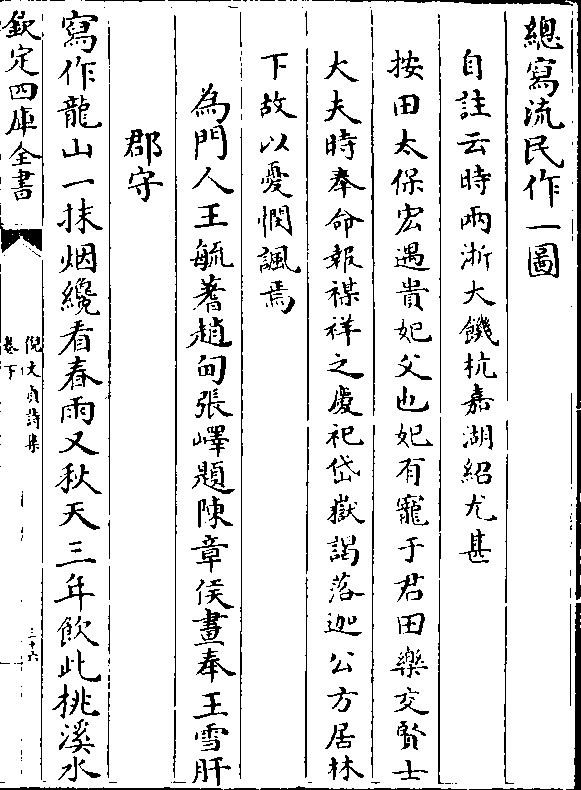 總寫流民作一圖
自註云時兩浙大饑杭嘉湖紹尤甚
按田太保宏遇貴妃父也妃有寵于君田樂交賢士
大夫時奉命報禖祥之慶祀岱嶽謁落迦公方居林
下故以憂憫諷焉
為門人王毓蓍趙甸張嶧題陳章侯畫奉王雪肝
郡守
寫作龍山一抹烟纔看春雨又秋天三年飲此桃溪水
欽定四庫全書
倪文貞詩集
卷下
三十六